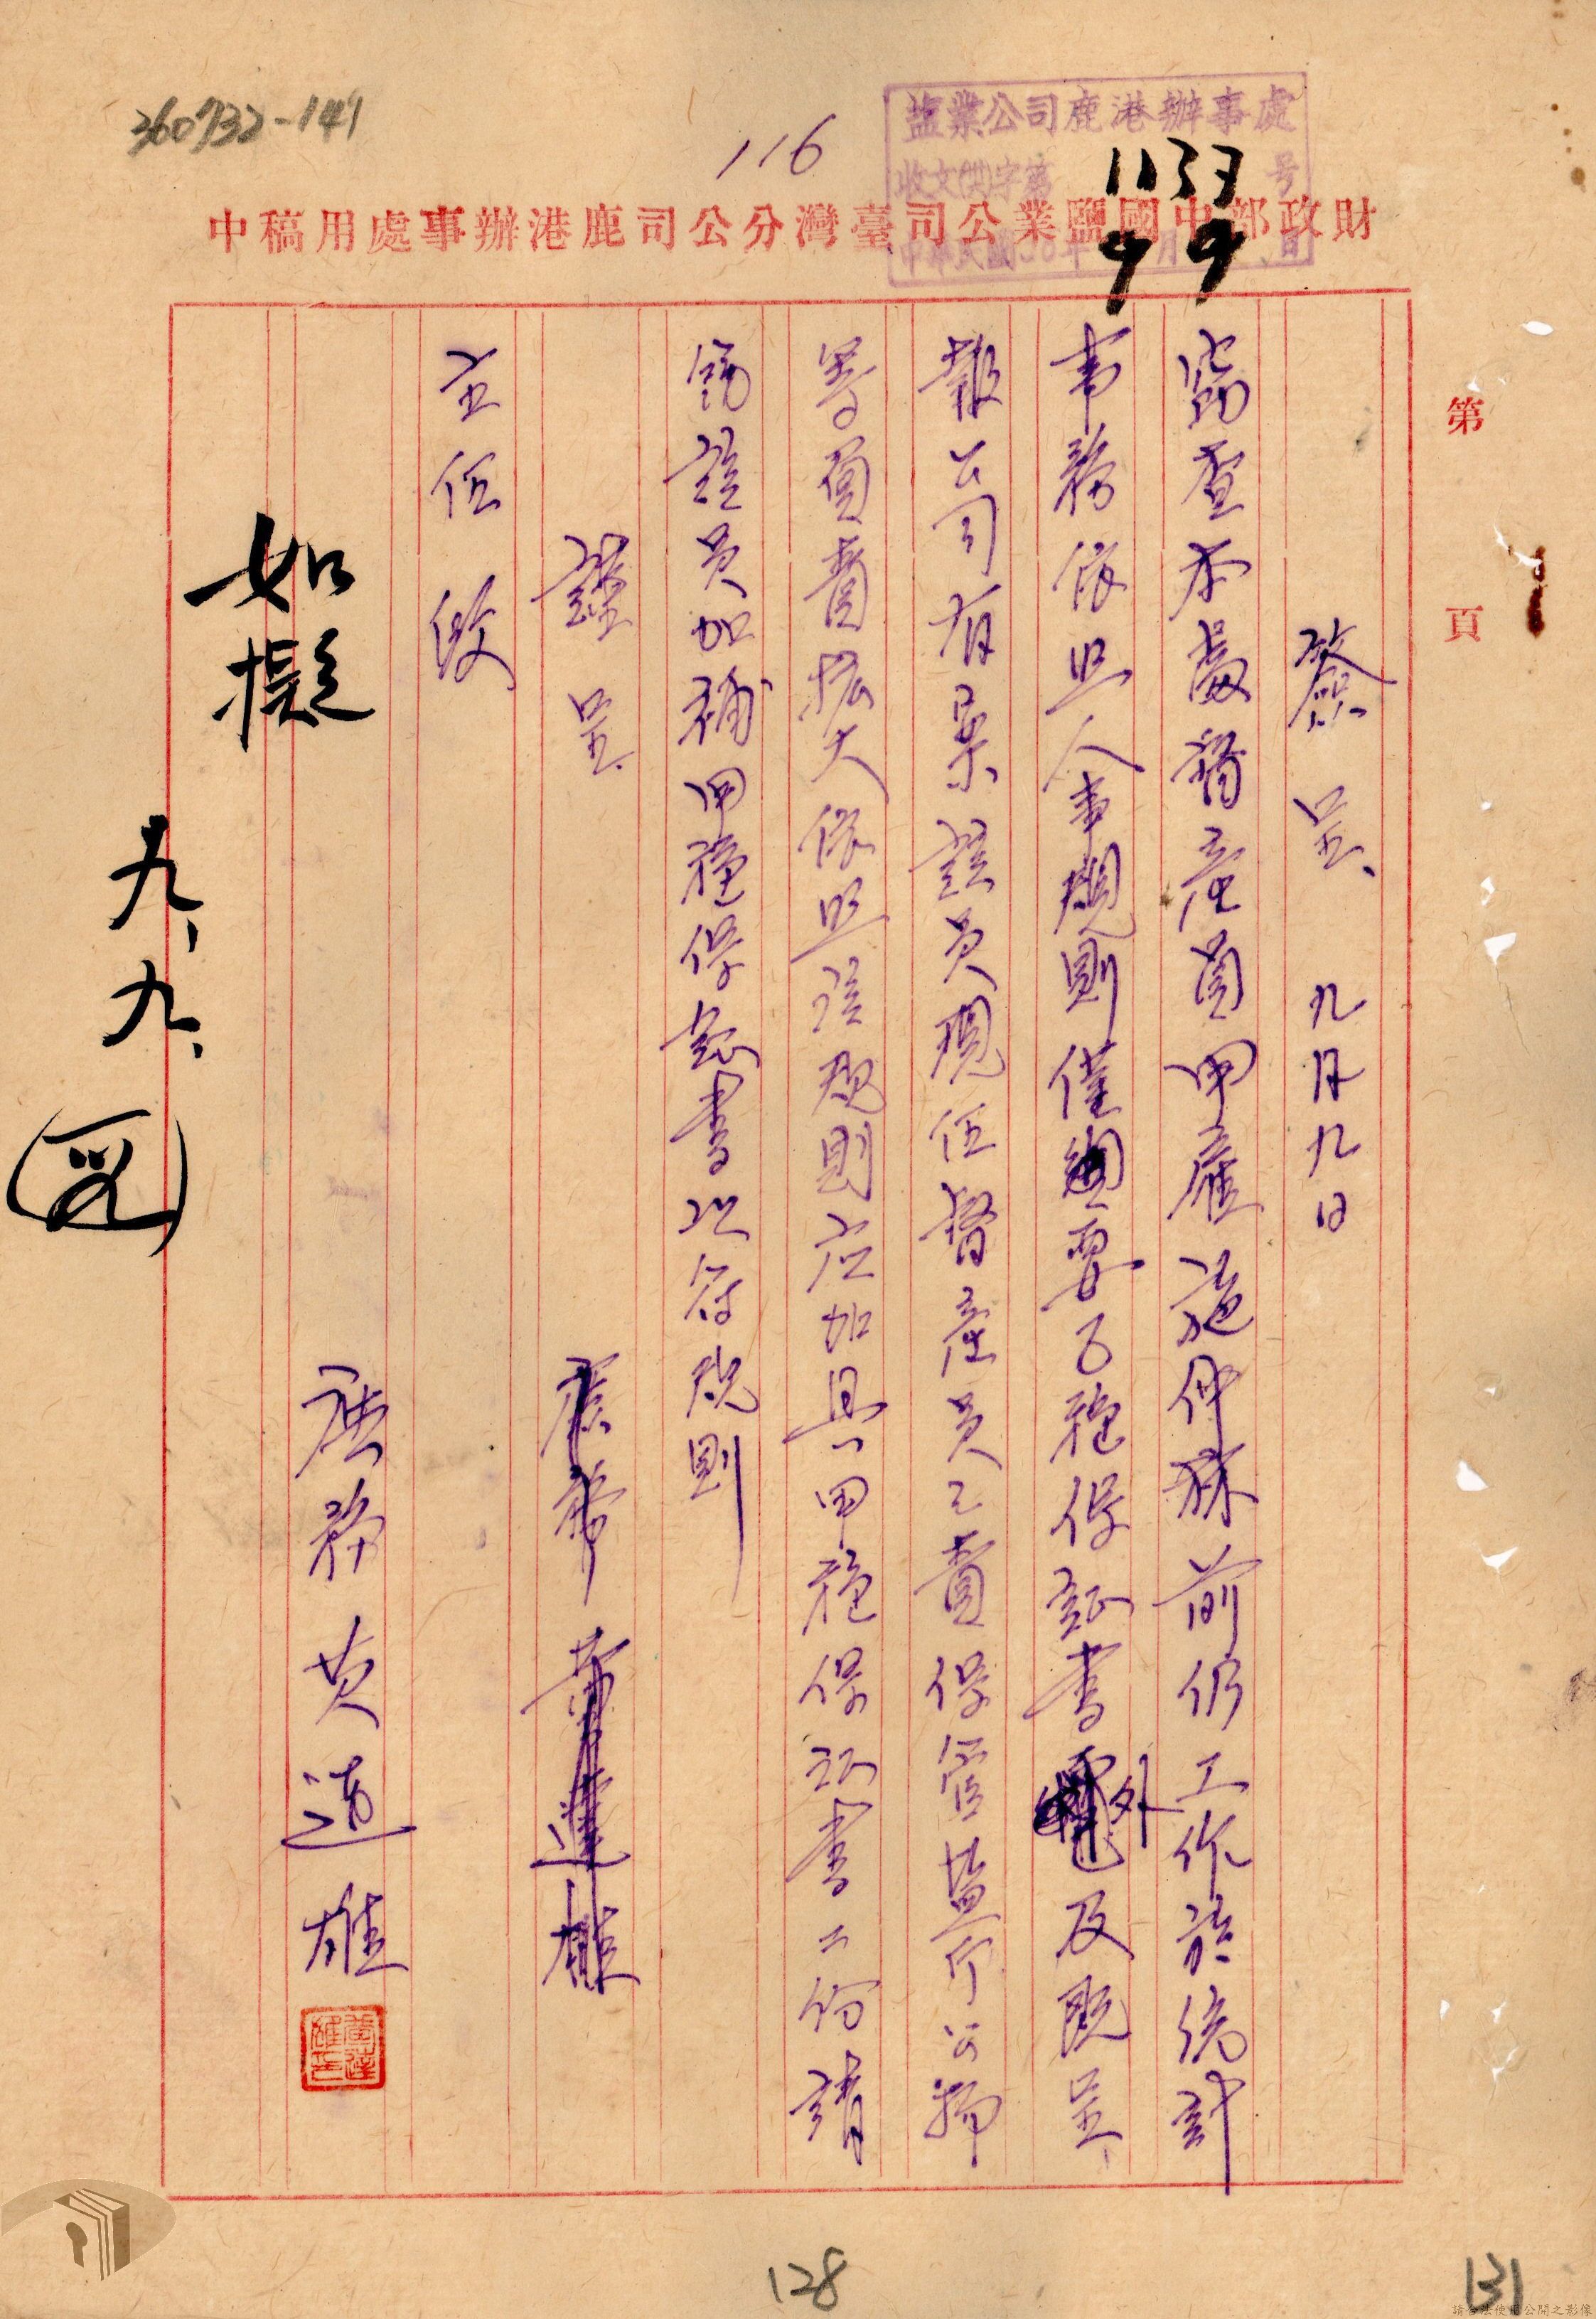 360732-141
116
盐業公司鹿港辦事處
收文(世)字第1133号
中華民國36年9月9日
財政部中國鹽業公司臺灣分公司鹿港辦事處用稿中
第 頁
簽呈 九月九日
竊查本處督產員甲雇施仲秣前仍工作於統計
事務依照人事規則僅要乙種保証書外及既呈
報公司有案該員現任督產員之責保管盐斤公物
等負責擴大依照該規則应加具甲種保証書二份請
飭該員加補甲種保証書以符規則
謹呈
主任 倪
庶務 黃達雄
黃達雄印
如擬
九、九、
128
131
請合法使用公開之影像